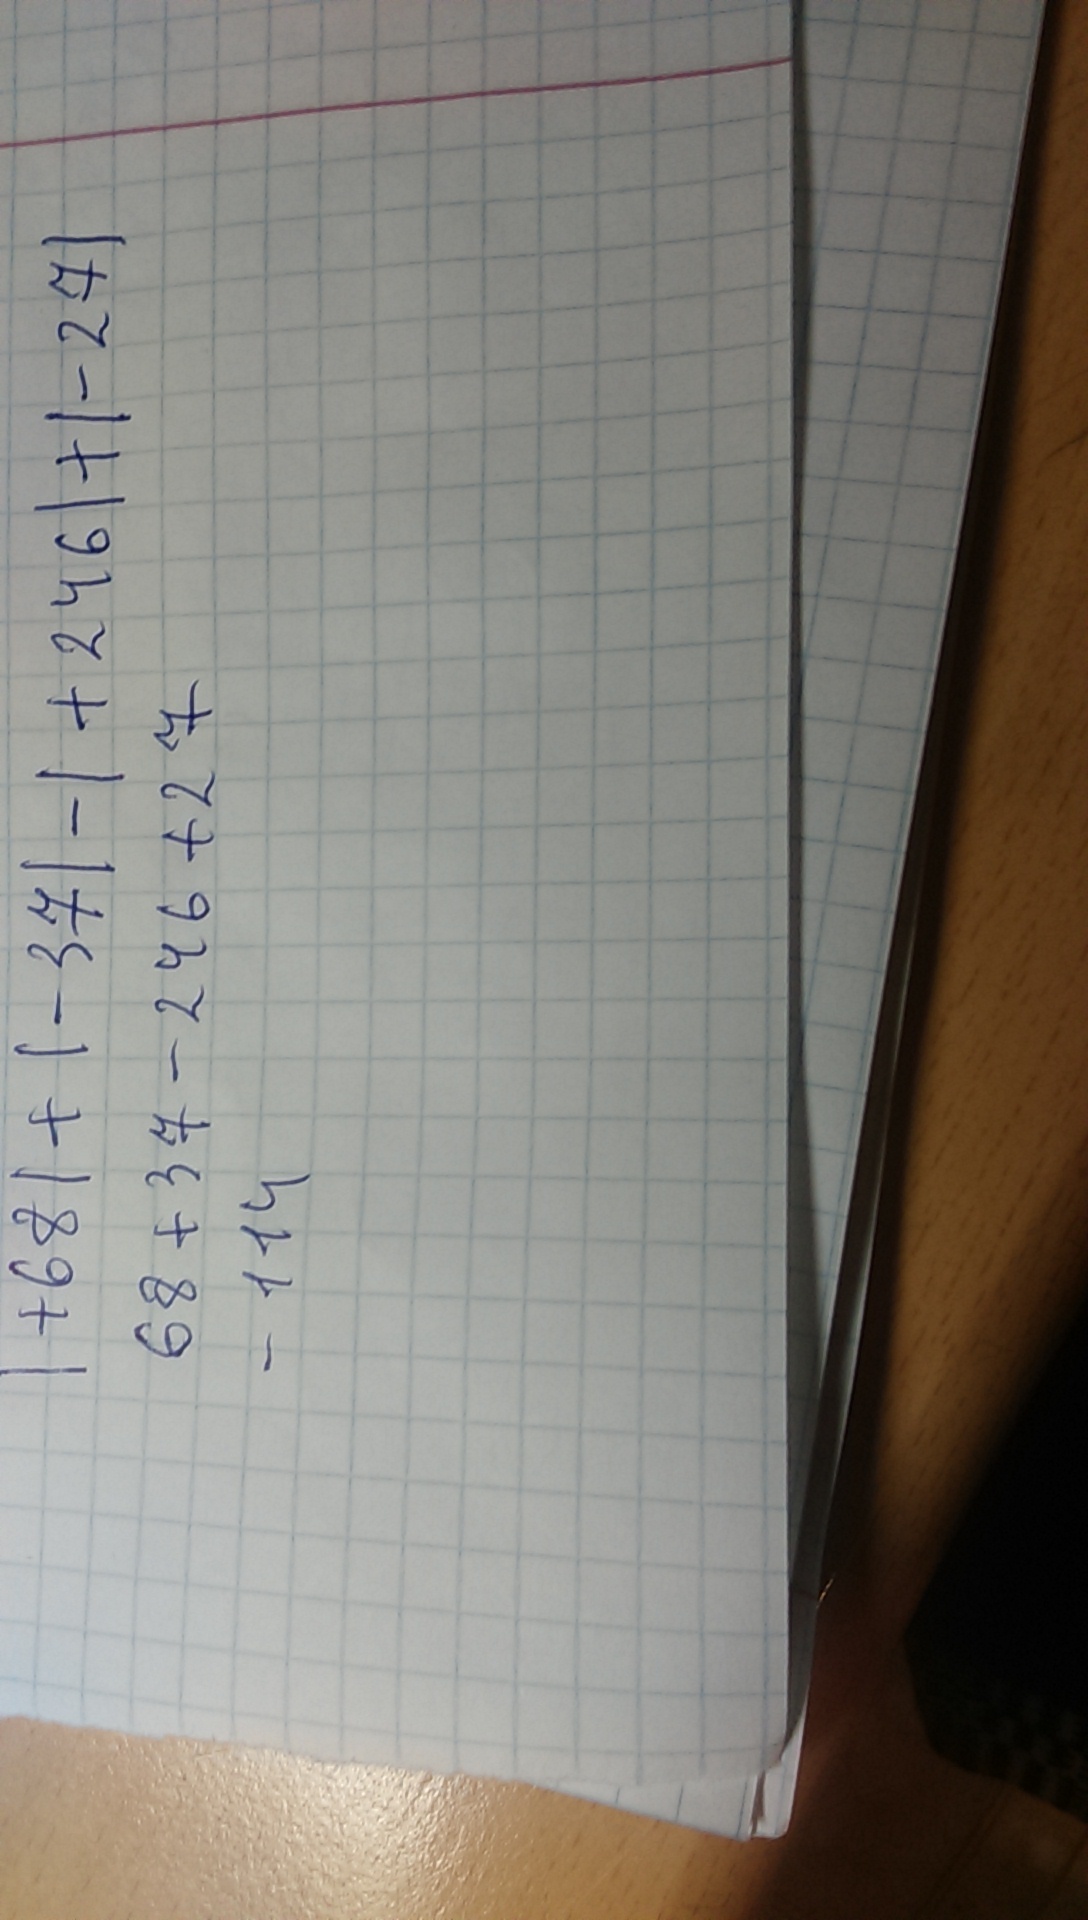 |+68|+|-37|-|+246|+|-27|
68+37-246+27
-114